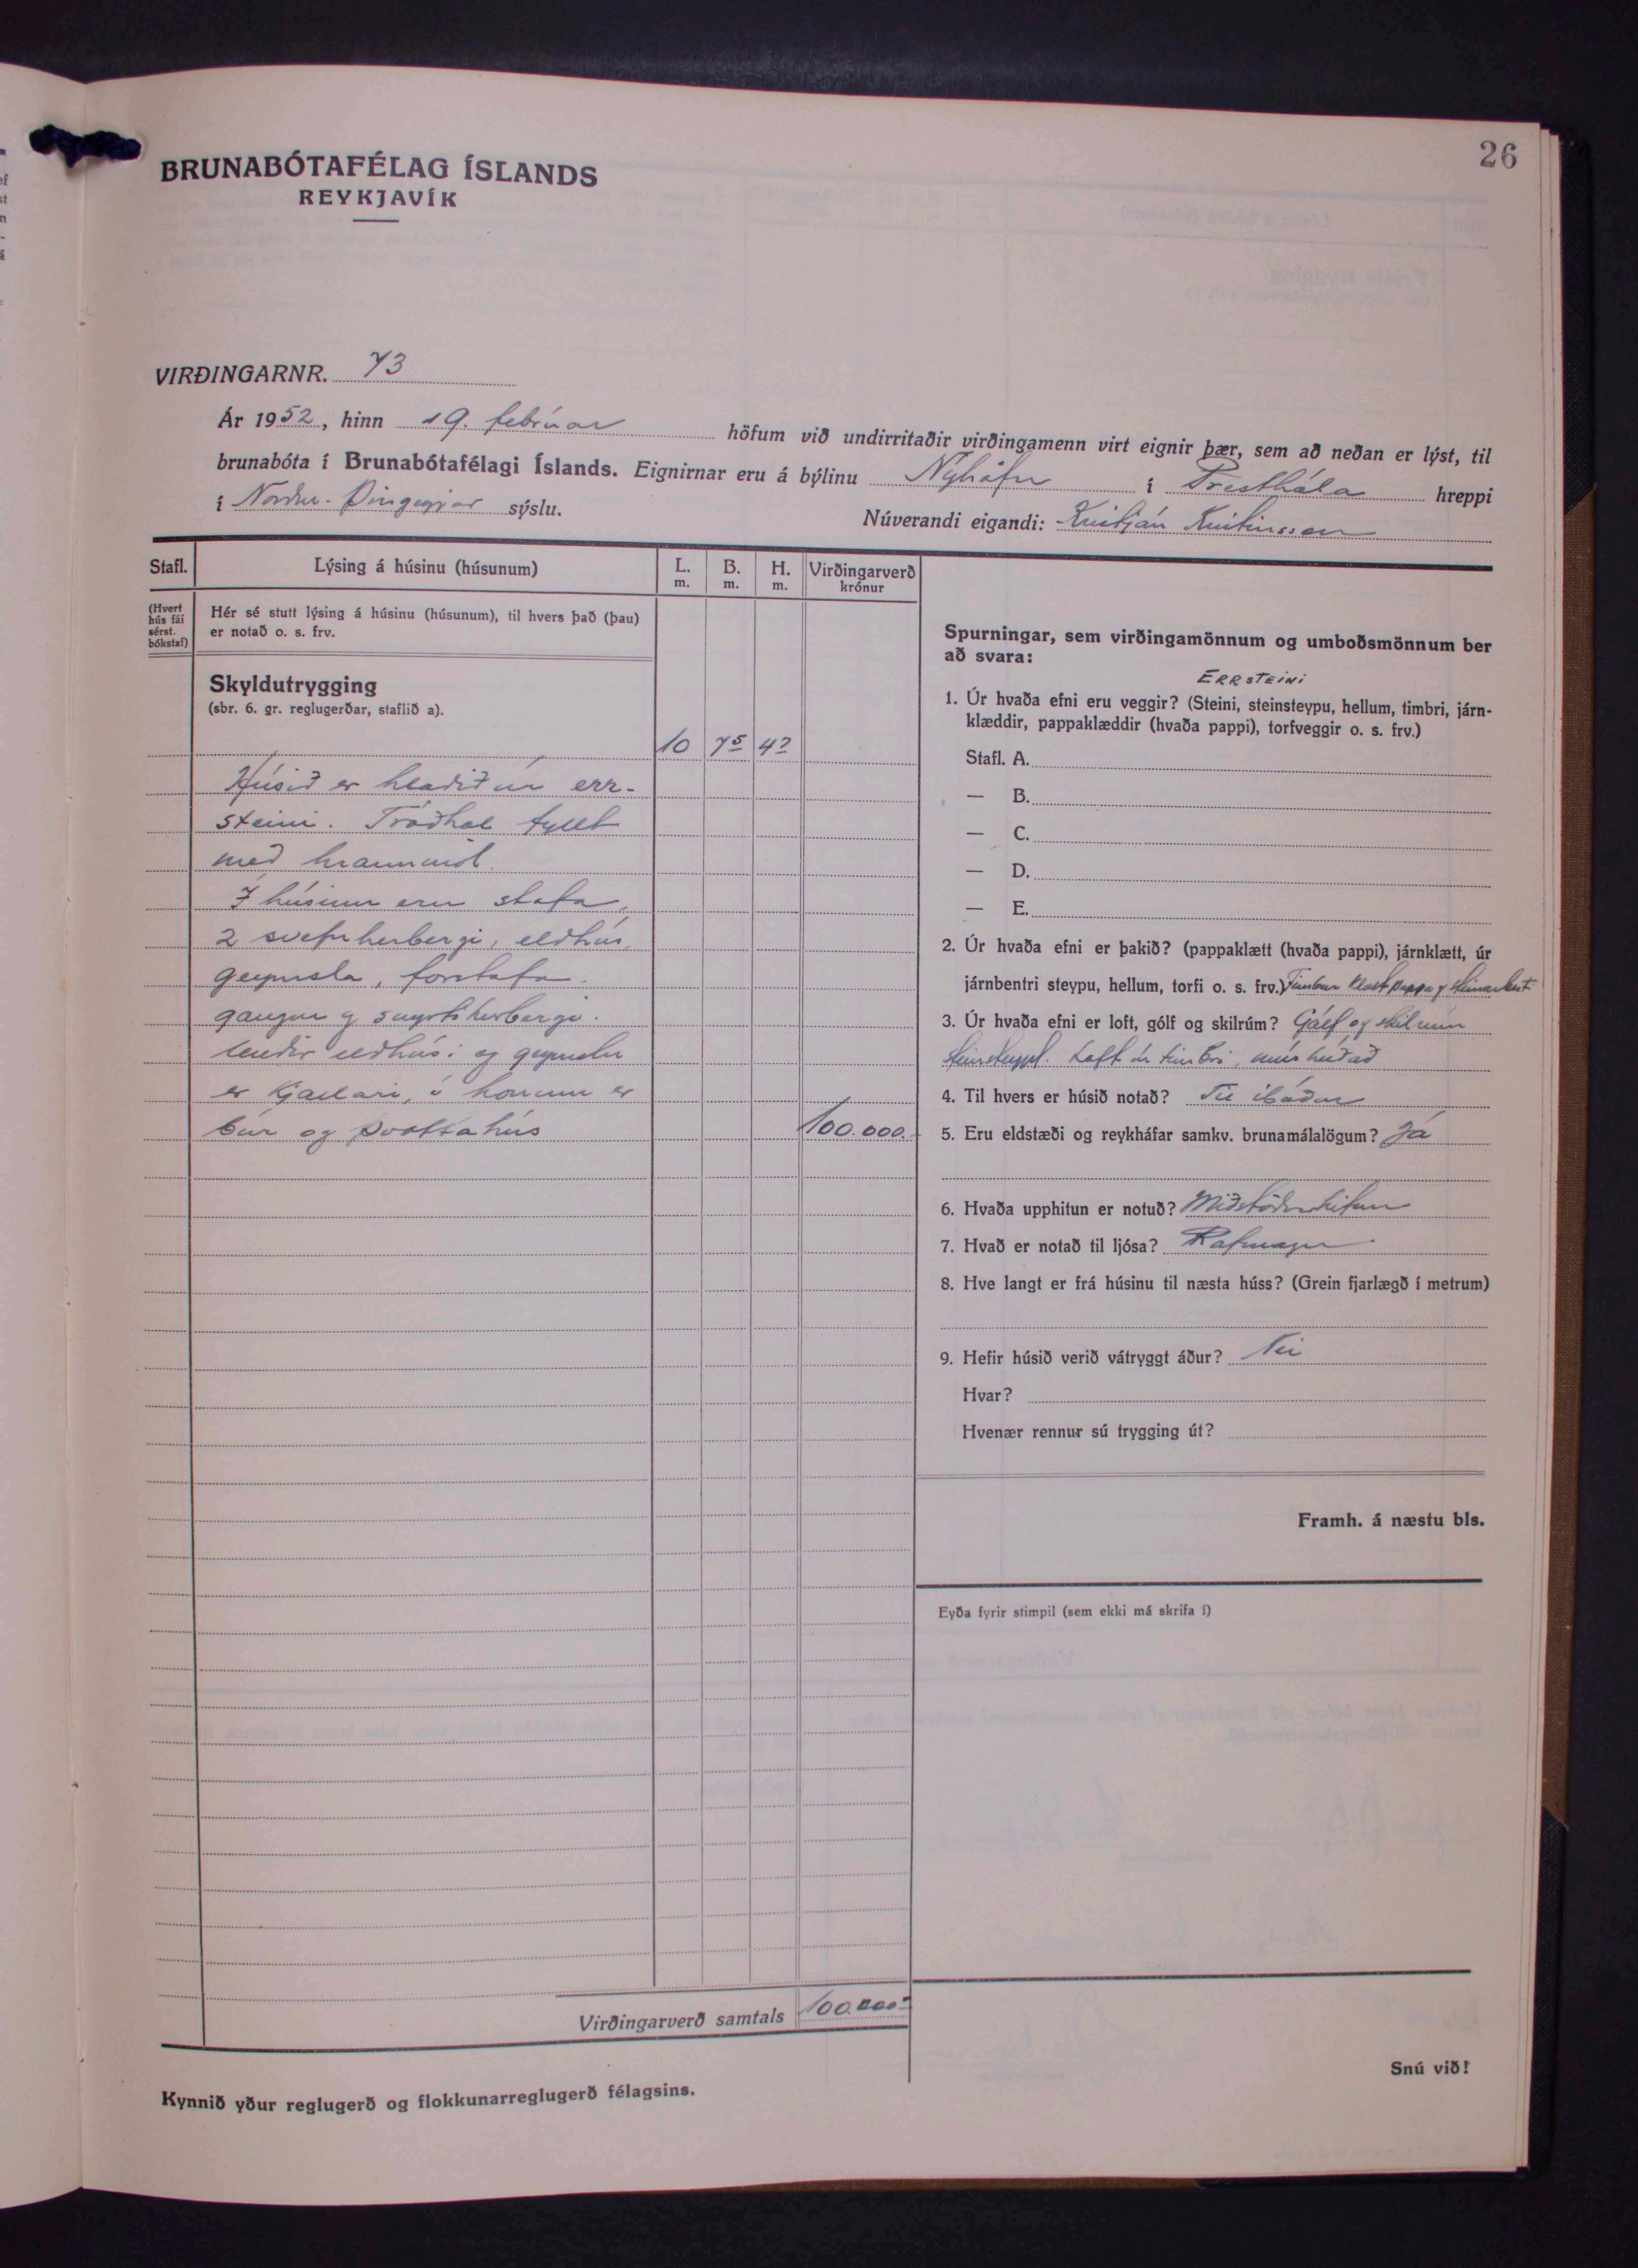 26
BRUNABÓTAFÉLAG ÍSLANDS
REYKJAVÍK
VIRÐINGARNR. 73
Ár 1952, hinn 19. febrúar höfum við undirritaðir virðingamenn virt eignir þær, sem að neðan er lýst, til
brunabóta í Brunabótafélagi Íslands. Eignirnar eru á býlinu Nýhöfn í Presthóla hreppi
í Norður-Þingeyjar sýslu. Núverandi eigandi: Kristján Kristinsson
Stafl. Lýsing á húsinu (húsunum) L. m. B. m. H. m. Virðingarverð krónur
(Hvert hús fái sérst. bókstaf)
Hér sé stutt lýsing á húsinu (húsunum), til hvers það (þau)
er notað o. s. frv.
Skyldutrygging
(sbr. 6. gr. reglugerðar, staflið a).
10 75 42
Húsið er hlaðið úr err-
steini. Tróðhol fyllt
með hraunmöl.
Í húsinu eru stofa,
2 svefnherbergi, eldhús,
geymsla, forstofa.
gangur og snyrtiherbergi.
Undir eldhúsi og geymslu
er kjallari, í honum er
búr og þvottahús 100.000.-
Virðingarverð samtals 100.000-
Kynnið yður reglugerð og flokkunarreglugerð félagsins.
Spurningar, sem virðingamönnum og umboðsmönnum ber
að svara:
ERRSTEINI
1. Úr hvaða efni eru veggir? (Steini, steinsteypu, hellum, timbri, járn-
klæddir, pappaklæddir (hvaða pappi), torfveggir o. s. frv.)
Stafl. A.
— B.
— C.
— D.
— E.
2. Úr hvaða efni er þakið? (pappaklætt (hvaða pappi), járnklætt, úr
járnbentri steypu, hellum, torfi o. s. frv.) Timbur klætt pappa og
3. Úr hvaða efni er loft, gólf og skilrúm? Gólf og skilrúm
steinsteypt. Loft úr timbri, múrhúðað
4. Til hvers er húsið notað? Til íbúðar
5. Eru eldstæði og reykháfar samkv. brunamálalögum? Já
6. Hvaða upphitun er notuð? Miðstöðvarhitun
7. Hvað er notað til ljósa? Rafmagn
8. Hve langt er frá húsinu til næsta húss? (Grein fjarlægð í metrum)
9. Hefir húsið verið vátryggt áður? Nei
Hvar?
Hvenær rennur sú trygging út?
Framh. á næstu bls.
Eyða fyrir stimpil (sem ekki má skrifa í)
Snú við!